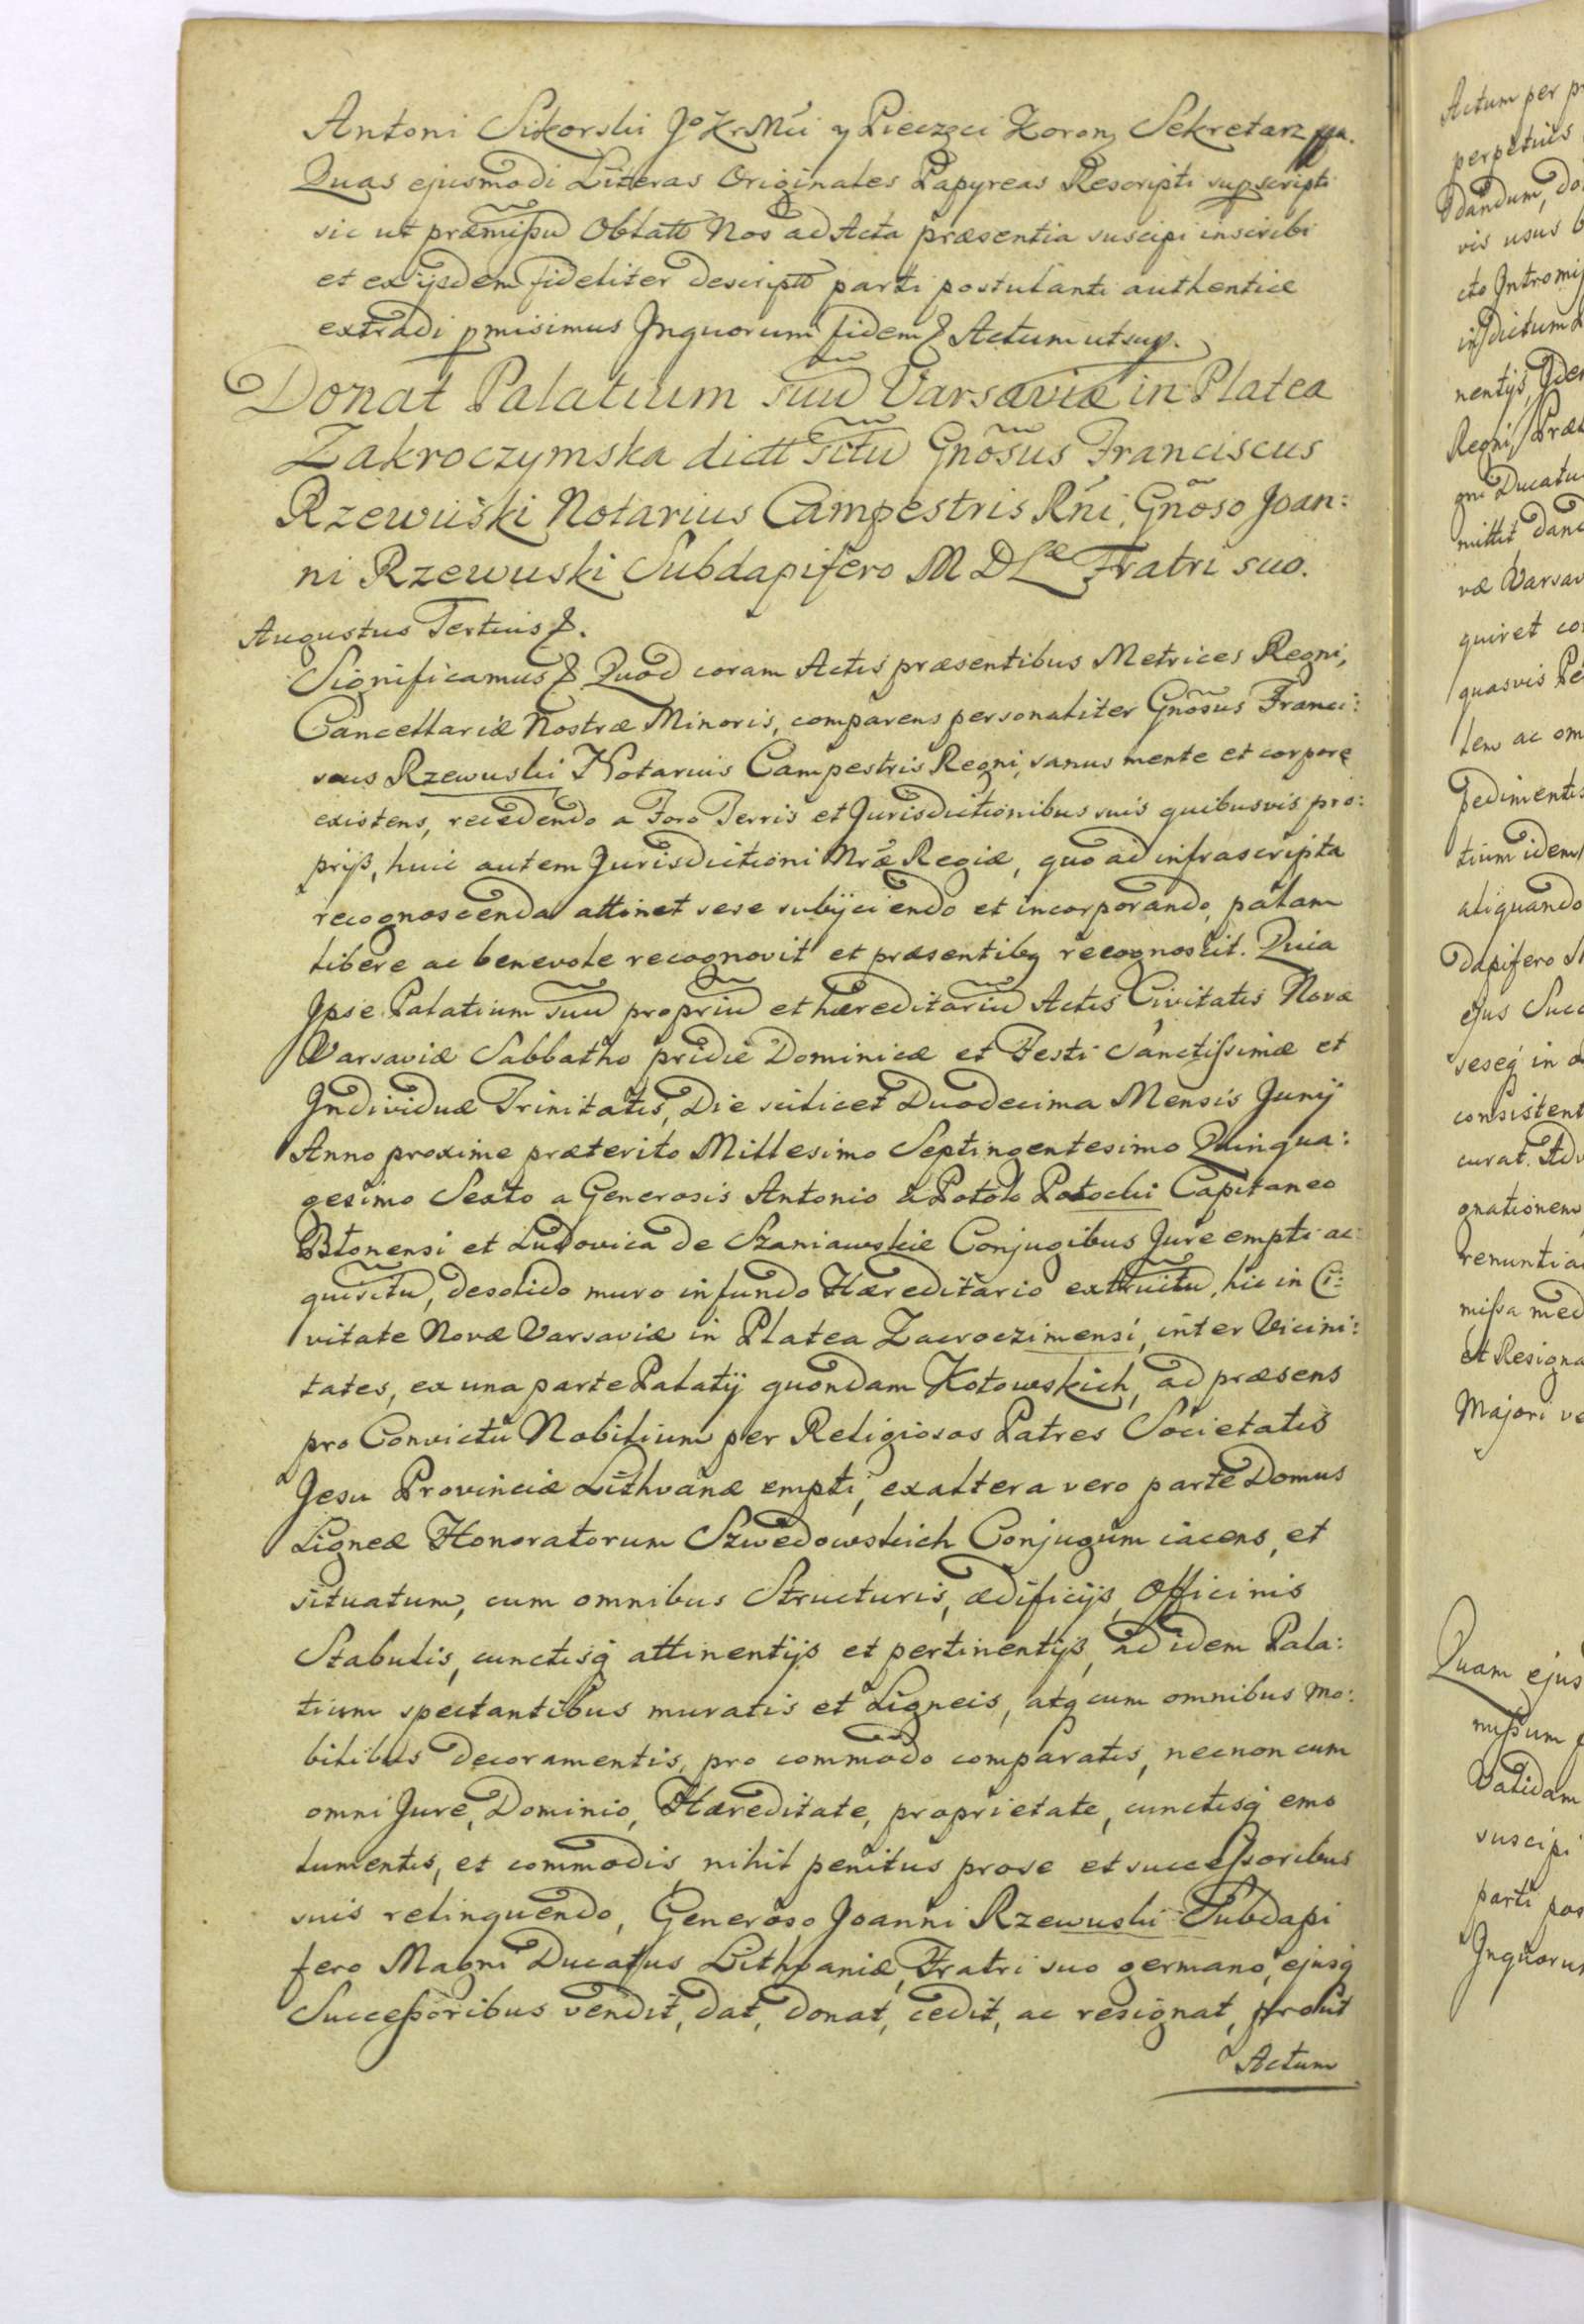 Antoni Sikorski Jo KrMći y Pieczęci Koron Sekretarz
Quas ejusmodi Literas Originales Papyreas Rescripti supscripti
sic ut præmißũ Oblatt Nos ad Acta præsentia suscipi inscribi
et ex ijsdem fideliter descriptt parti postulanti authentice
extradi pmisimus Jnquorum fidem & Actum ut sup.
Donat Palatium suũ Varsaviæ in Platea
Zakroczymska dictt sitũ Gnõsus Franciscus
Rzewuski Notarius Campestris Rni, Gnõso Joan:
ni Rzewuski Subdapifero M D Læ Fratri suo.
Augustus Tertius &.
Significamus & Quod coram Actis præsentibus Metrices Regni,
Cancellariæ Nostræ Minoris, comparens personaliter Gnõsus Franci:
scus Rzewuski Notarius Campestris Regni, sanus mente et corpore
existens, recedendo a Foro Terris et Jurisdictionibus suis quibusvis pro:
prijs, huic autem Jurisdictioni Nræ Regiæ, quo ad infrascripta
recognoscenda attinet sese subijciendo et incorporando, palam
libere ac benevole recognovit et præsentibq recognoscit. Quia
Jpse Palatium suũ propriũ et hæreditariũ Actis Civitatis Novæ
Varsaviæ Sabbatho pridie Dominicæ et Festi Sanctißimæ et
Jndividuæ Trinitatis, Die scilicet Duodecima Mensis Junij
Anno proxime præterito Millesimo Septingentesimo Quinqua:
gesimo Sexto a Generosis Antonio à Potok Potocki Capitaneo
Błonensi et Ludovica de Szaniawskie Conjugibus Jure empti ac:
quisitũ, de solido muro in fundo Hæreditario extructũ, hic in Ci:
vitate Novæ Varsaviæ in Platea Zacroczimensi, inter Vicini:
tates, ex una parte Palatij quondam Kotowskich, ad præsens
pro Convictu Nobilium per Religiosos Patres Societatis
Jesu Provinciæ Lithvanæ empti, ex altera vero parte Domus
Ligneæ Honoratorum Szwedowskich Conjugum iacens, et
situatum, cum omnibus Structuris, ædificijs, Officinis
Stabulis, cunctisq attinentijs et pertinentijs, ad idem Pala:
tium spectantibus muratis et Ligneis, atq cum omnibus mo:
bilibus decoramentis, pro commodo comparatis, necnon cum
omni Jure, Dominio, Hæreditate, proprietate, cunctisq emo
lumentis, et commodis nihil penitus pro se et succeßoribus
suis relinquendo, Generoso Joanni Rzewuski Subdapi
fero Magni Ducatus Lithvaniæ, Fratri suo germano, ejusq
Succeßoribus vendit, dat, donat, cedit, ac resignat, prout
Actum
Actum per
perpetuis
dandum,
vis usus
cto
nentijs,
Regni,
gni Ducatu
mittit
væ Varsav
quiret
quasvis
tem ac om
pedimentis
tium idem
aliquando
dapifero
ejus Succ
seseq in
consistent
curat.
gnationem
renuntia
mißa med
et Resigna
Majori
Quam ejus
mißum
Validam
suscipi
parti pos
Jnquorum